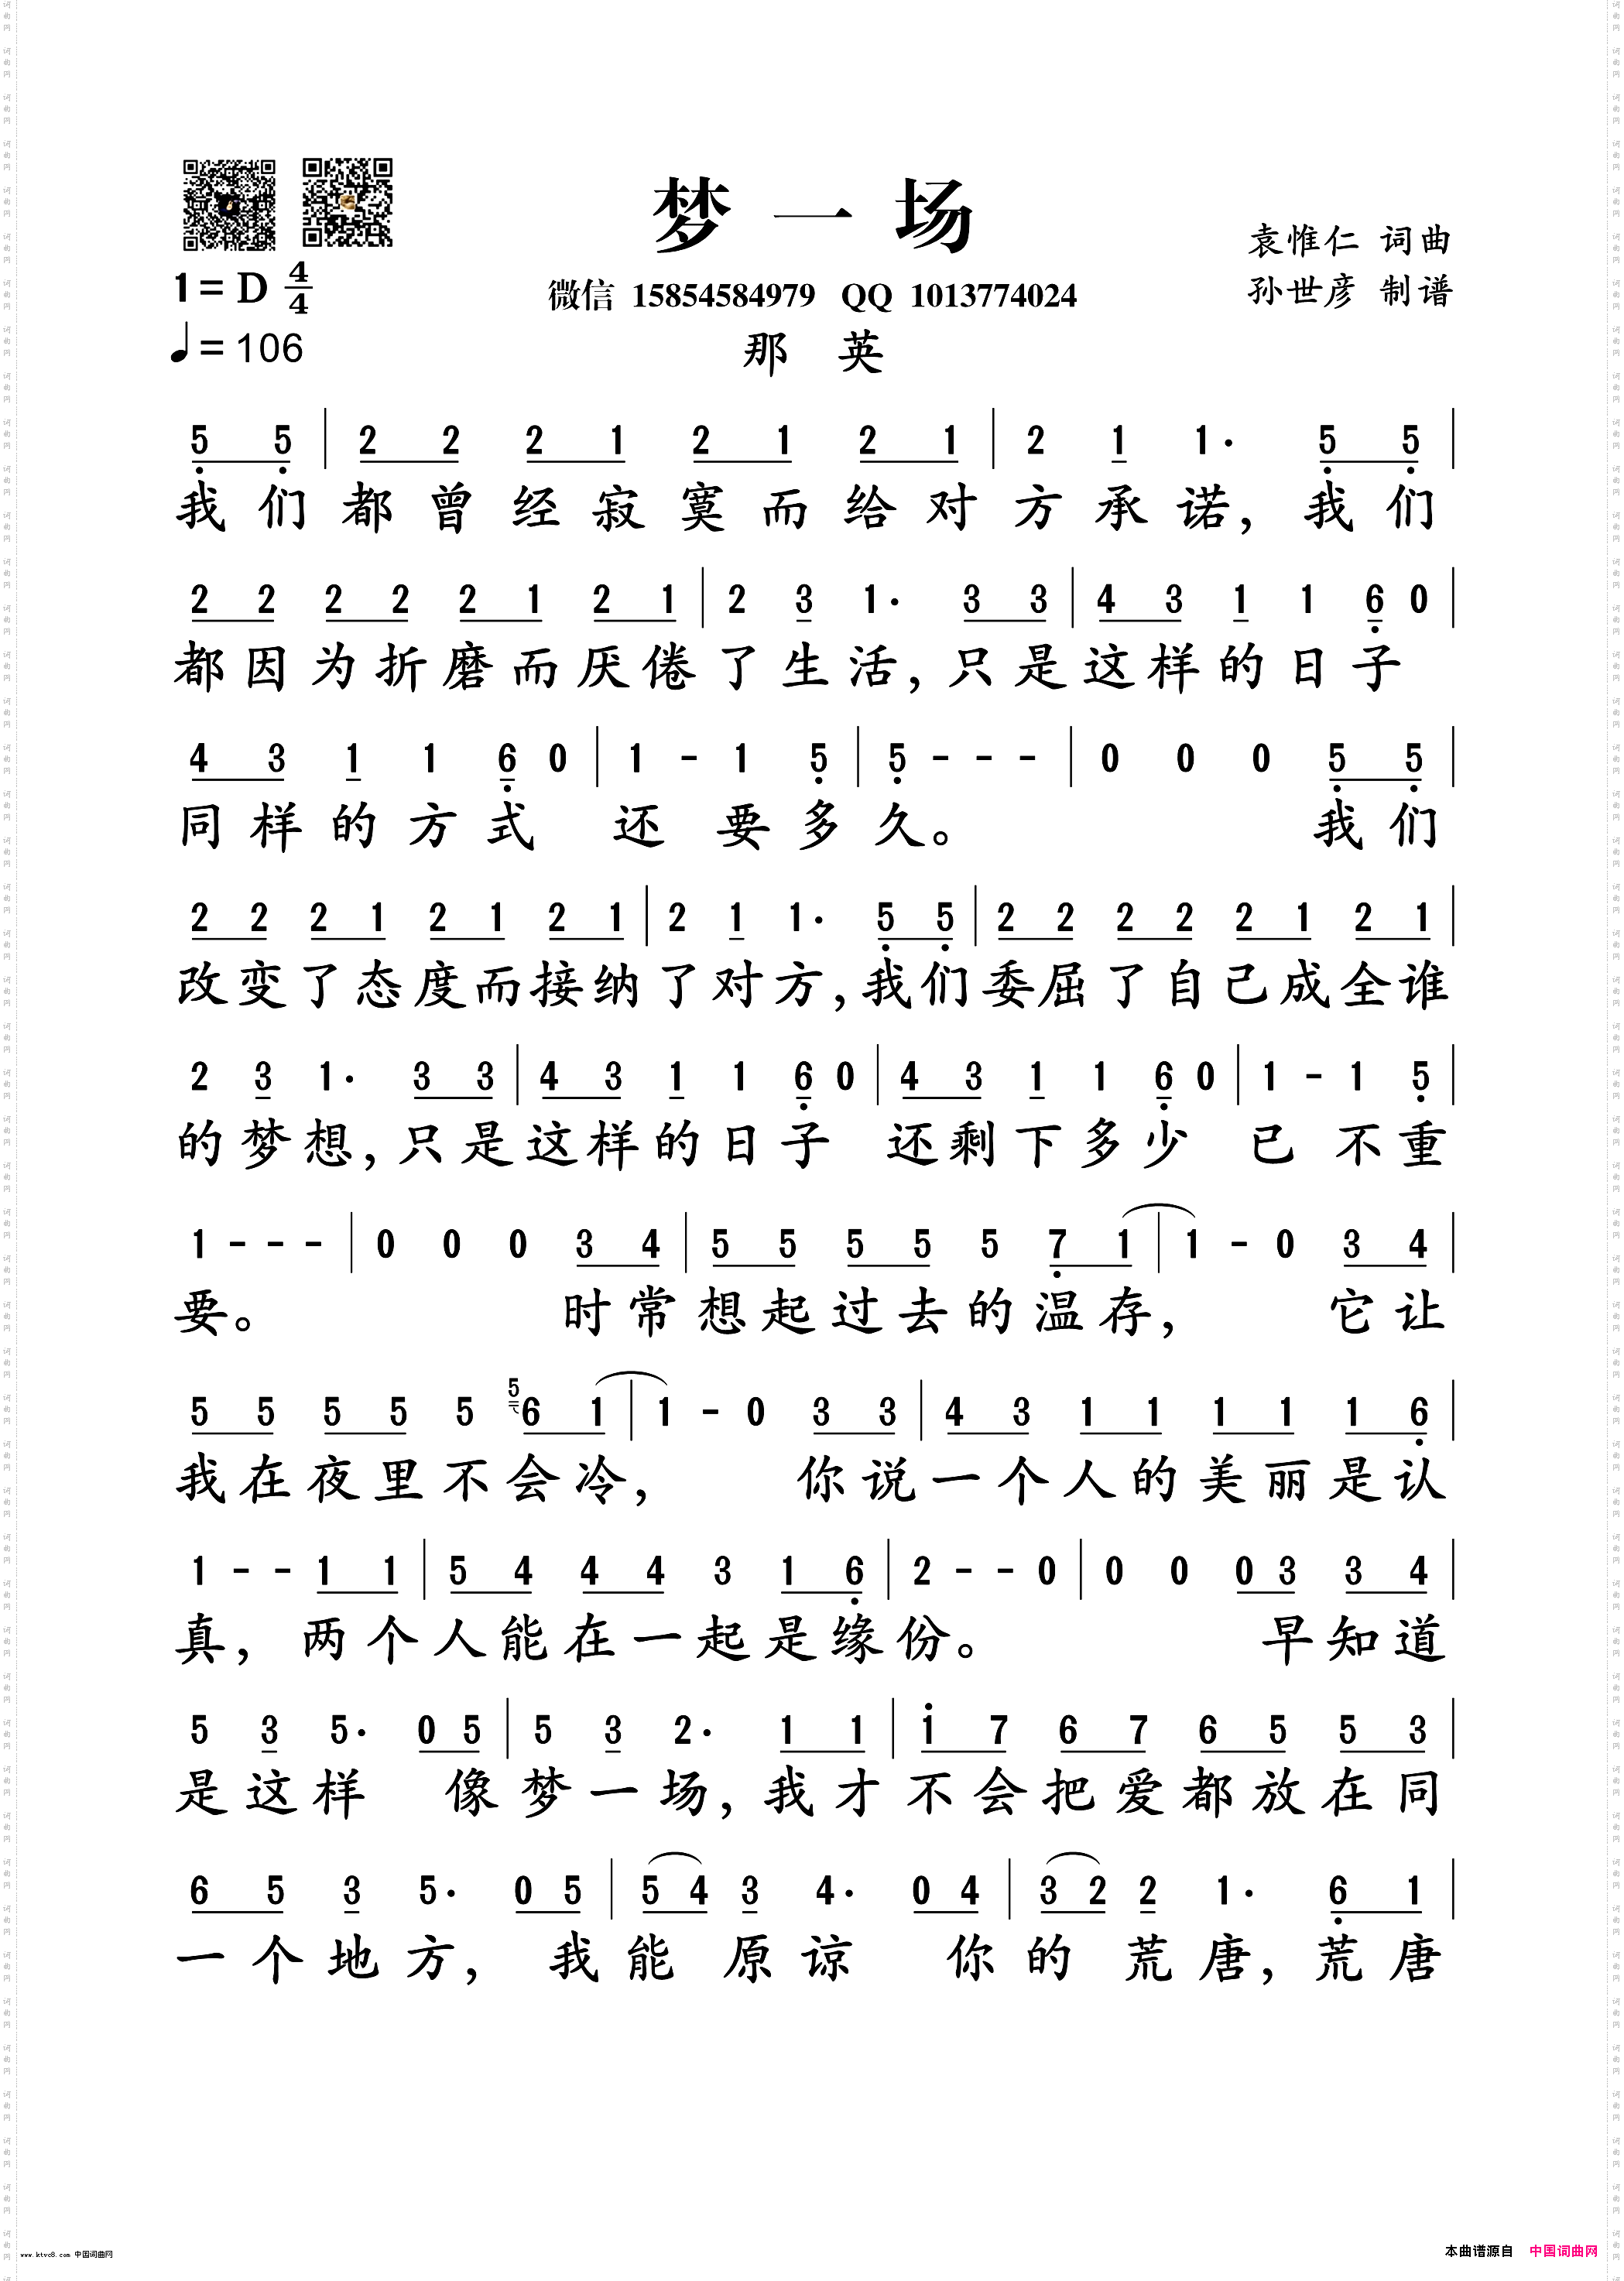 梦一场
袁惟仁 词曲
1=D 4/4
微信 15854584979 QQ 1013774024
孙世彦 制谱
♩=106
那 英
5 5 | 2 2 2 1 2 1 2 1 | 2 1 1· 5 5 |
我们都曾经寂寞而给对方承诺,我们
2 2 2 2 2 1 2 1 | 2 3 1· 3 3 | 4 3 1 1 6 0 |
都因为折磨而厌倦了生活,只是这样的日子
4 3 1 1 6 0 | 1 - 1 5 | 5 - - - | 0 0 0 5 5 |
同样的方式 还要多久。 我们
2 2 2 1 2 1 2 1 | 2 1 1· 5 5 | 2 2 2 2 2 1 2 1 |
改变了态度而接纳了对方,我们委屈了自己成全谁
2 3 1· 3 3 | 4 3 1 1 6 0 | 4 3 1 1 6 0 | 1 - 1 5 |
的梦想,只是这样的日子 还剩下多少 已不重
1 - - - | 0 0 0 3 4 | 5 5 5 5 5 7 1 | 1 - 0 3 4 |
要。 时常想起过去的温存, 它让
5 5 5 5 5 5 6 1 | 1 - 0 3 3 | 4 3 1 1 1 1 1 6 |
我在夜里不会冷, 你说一个人的美丽是认
1 - - 1 1 | 5 4 4 4 3 1 6 | 2 - - 0 | 0 0 0 3 3 4 |
真, 两个人能在一起是缘份。 早知道
5 3 5· 0 5 | 5 3 2· 1 1 | 1 7 6 7 6 5 5 3 |
是这样 像梦一场,我才不会把爱都放在同
6 5 3 5· 0 5 | 5 4 3 4· 0 4 | 3 2 2 1· 6 1 |
一个地方, 我能原谅 你的荒唐,荒唐
www.ktvc8.com 中国词曲网
本曲谱源自 中国词曲网